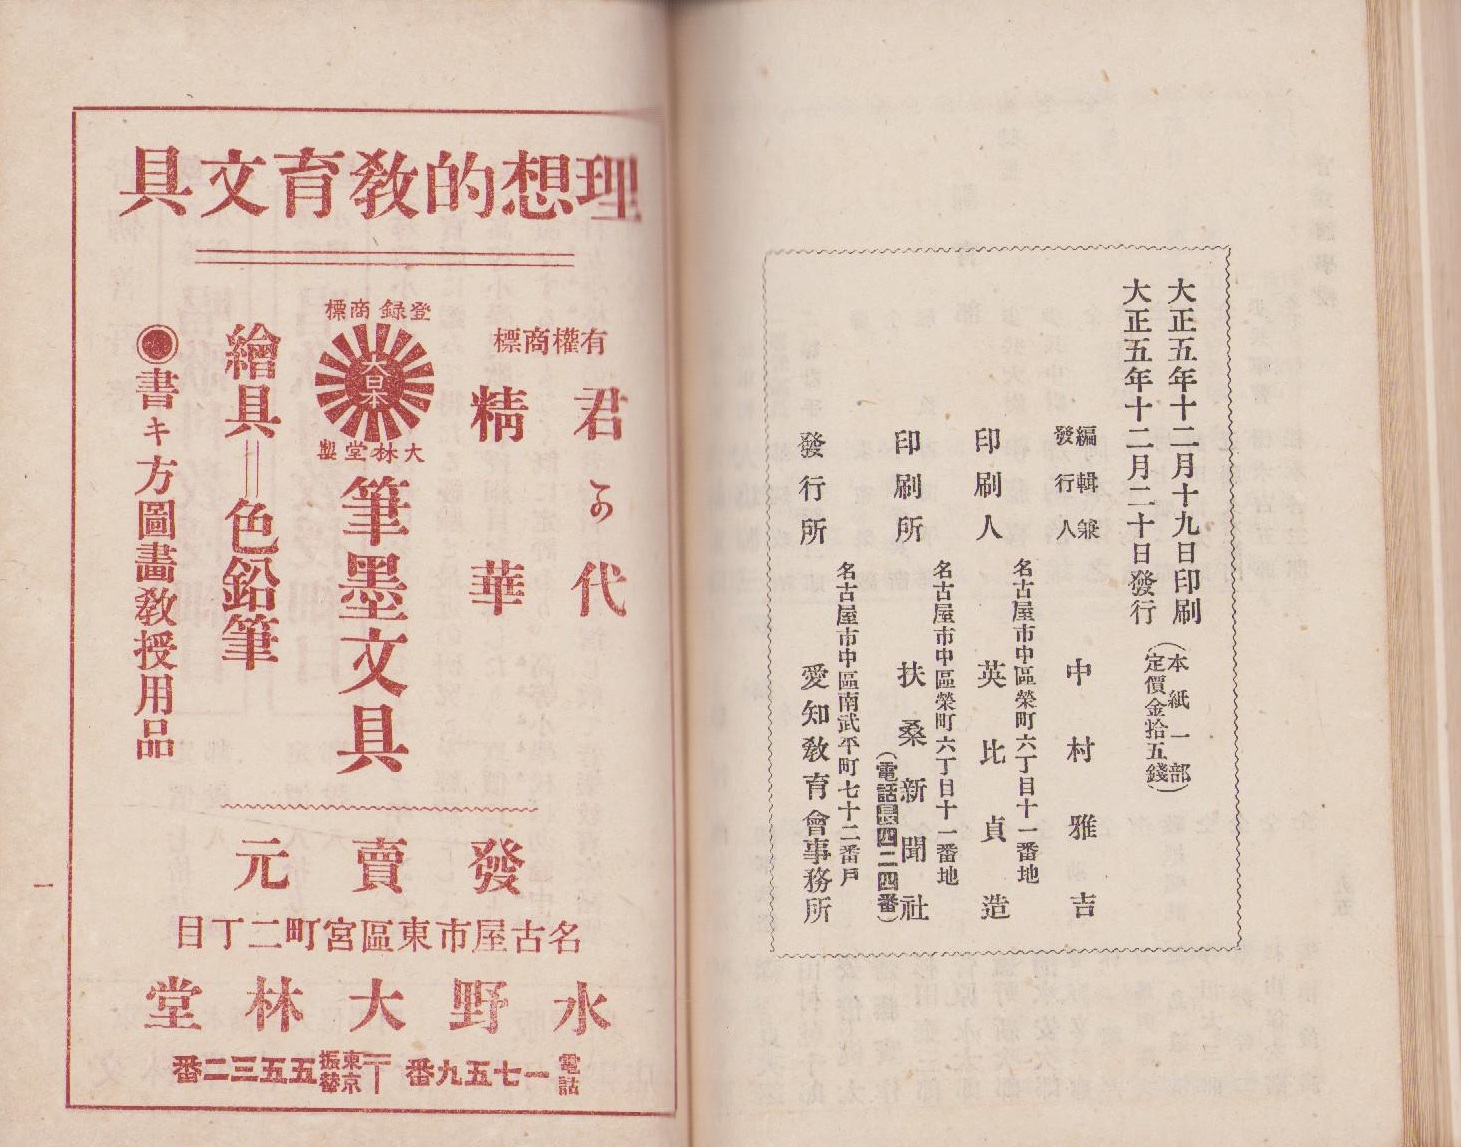 大正五年十二月十九日印刷
大正五年十二月二十日發行
(本紙一部
定價金拾五錢)
編輯兼
發行人
中村雅吉
名古屋市中區榮町六丁目十一番地
印刷人
英比貞造
名古屋市中區榮町六丁目十一番地
印刷所
扶桑新聞社
(電話長四二四番)
名古屋市中區南武平町七十二番戶
發行所
愛知敎育會事務所
理想的敎育文具
有權商標
君が代
精華
登錄商標
大日本
大林堂製
筆墨文具
繪具=色鉛筆
◉書キ方圖畵敎授用品
發賣元
名古屋市東區宮町二丁目
水野大林堂
電話一七五九番
東京
振替
五五三二番
一